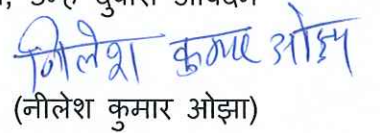 गिलेश कुमार ओझा
(नीलेश कुमार ओझा)